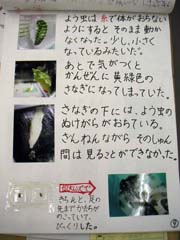 よう虫は糸で体がおちない
ようにすると そのまま動か
なくなった。少し、小さく
なっているみたいだ。
あとで気がつくと
かんぜんに黄緑色の
さなぎになってしまっていた。
さなぎの下には、よう虫の
ぬけがらがおちている。
ざんねんながら そのしゅん
間は見ることができなかった。
さわると、足の
先まで
のこっていて、
びっくりした。